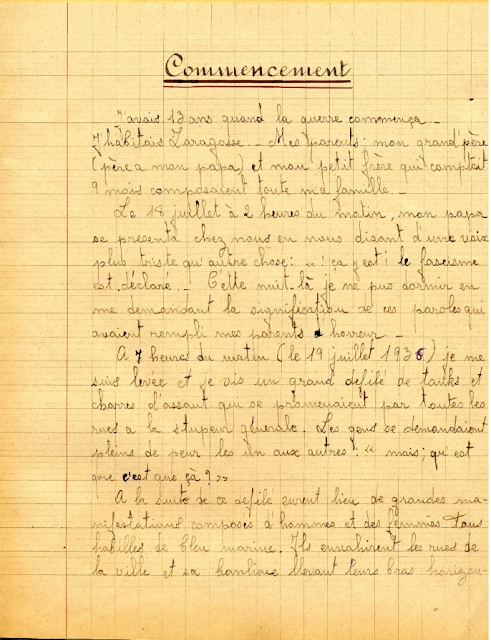 Commencement
J'avais 13 ans quand la guerre commença._
J'habitais Zaragosse._ Mes parents; mon grand'père
(père a mon papa) et mon petit frère qui comptait
9 mois composaient toute ma famille._
Le 18 juillet à 2 heures du matin, mon papa
se presenta chez nous en nous disant d'une voix
plus triste qu'autre chose: "! ça y est! le fascisme
est déclaré._ Cette nuit-là je ne pus dormir en
me demandant la signification de ces paroles qui
avaient rempli mes parents d'horreur._
A 7 heures du matin (le 19 juillet 1936) je me
suis levée et je vis un grand défilé de tanks et
charres d'assaut qui se promenaient par toutes les
rues a la stupeur générale. Les gens se demandaient
pleins de peur les un aux autres: « mais; qu'est
que c'est que çà? »
A la suite de ce défilé eurent lieu de grandes ma-
nifestations composés d'hommes et des femmes tous
habillés de bleu marine. Ils envahirent les rues de
la ville et sa banlieue llevant leurs bras horizon-